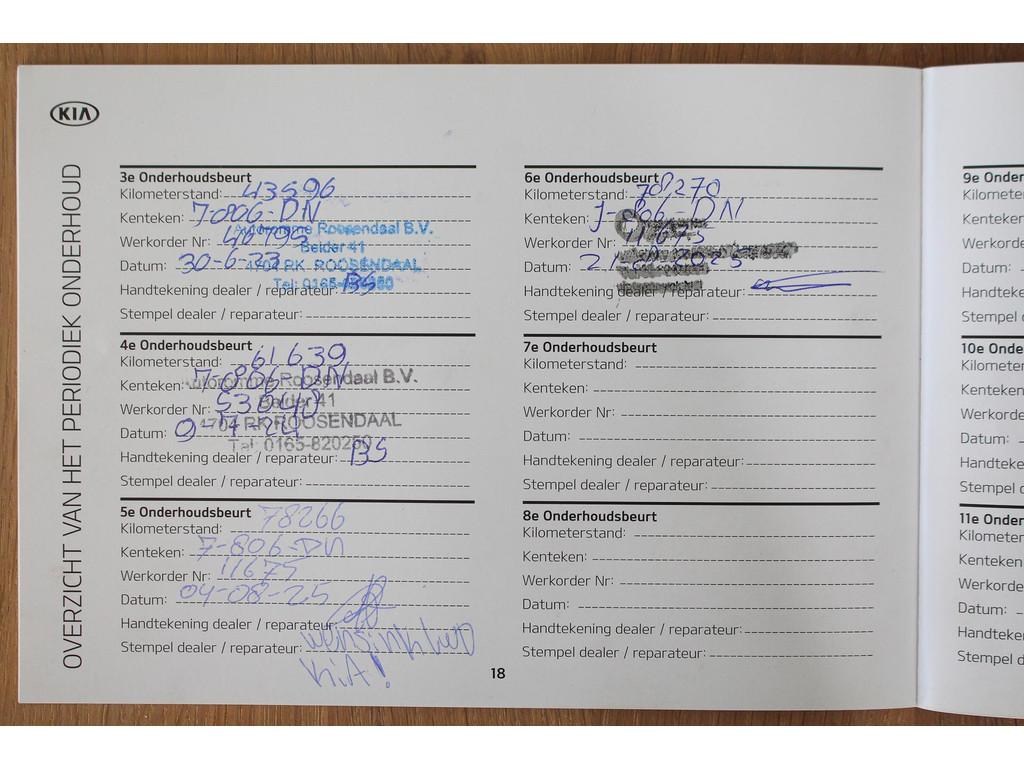 KIA
OVERZICHT VAN HET PERIODIEK ONDERHOUD
3e Onderhoudsbeurt
Kilometerstand: 43596
Kenteken: J-806-DN
Werkorder Nr: 46795
Autoromme Roosendaal B.V.
Belder 41
Datum: 30-6-23
4704 RK ROOSENDAAL
Tel: 0165-820250
Handtekening dealer / reparateur: BS
Stempel dealer / reparateur:
4e Onderhoudsbeurt
Kilometerstand: 61639
Kenteken: J-806-DN
Autoromme Roosendaal B.V.
Werkorder Nr: 53040
Belder 41
4704 RK ROOSENDAAL
Datum:
Tel: 0165-820250
Handtekening dealer / reparateur: BS
Stempel dealer / reparateur:
5e Onderhoudsbeurt
Kilometerstand: 78266
Kenteken: J-806-DN
Werkorder Nr: 11675
Datum: 04-08-25
Handtekening dealer / reparateur:
Stempel dealer / reparateur:
KIA!
6e Onderhoudsbeurt
Kilometerstand: 78270
Kenteken: J-806-DN
Werkorder Nr: 11675
Datum:
Handtekening dealer / reparateur:
Stempel dealer / reparateur:
7e Onderhoudsbeurt
Kilometerstand:
Kenteken:
Werkorder Nr:
Datum:
Handtekening dealer / reparateur:
Stempel dealer / reparateur:
8e Onderhoudsbeurt
Kilometerstand:
Kenteken:
Werkorder Nr:
Datum:
Handtekening dealer / reparateur:
Stempel dealer / reparateur:
18
9e Onder
Kilomete
Kenteken
Werkorde
Datum:
Handteke
Stempel d
10e Onde
Kilometer
Kenteken
Werkorde
Datum:
Handteke
Stempel d
11e Onder
Kilometer
Kenteken
Werkorde
Datum:
Handteke
Stempel d